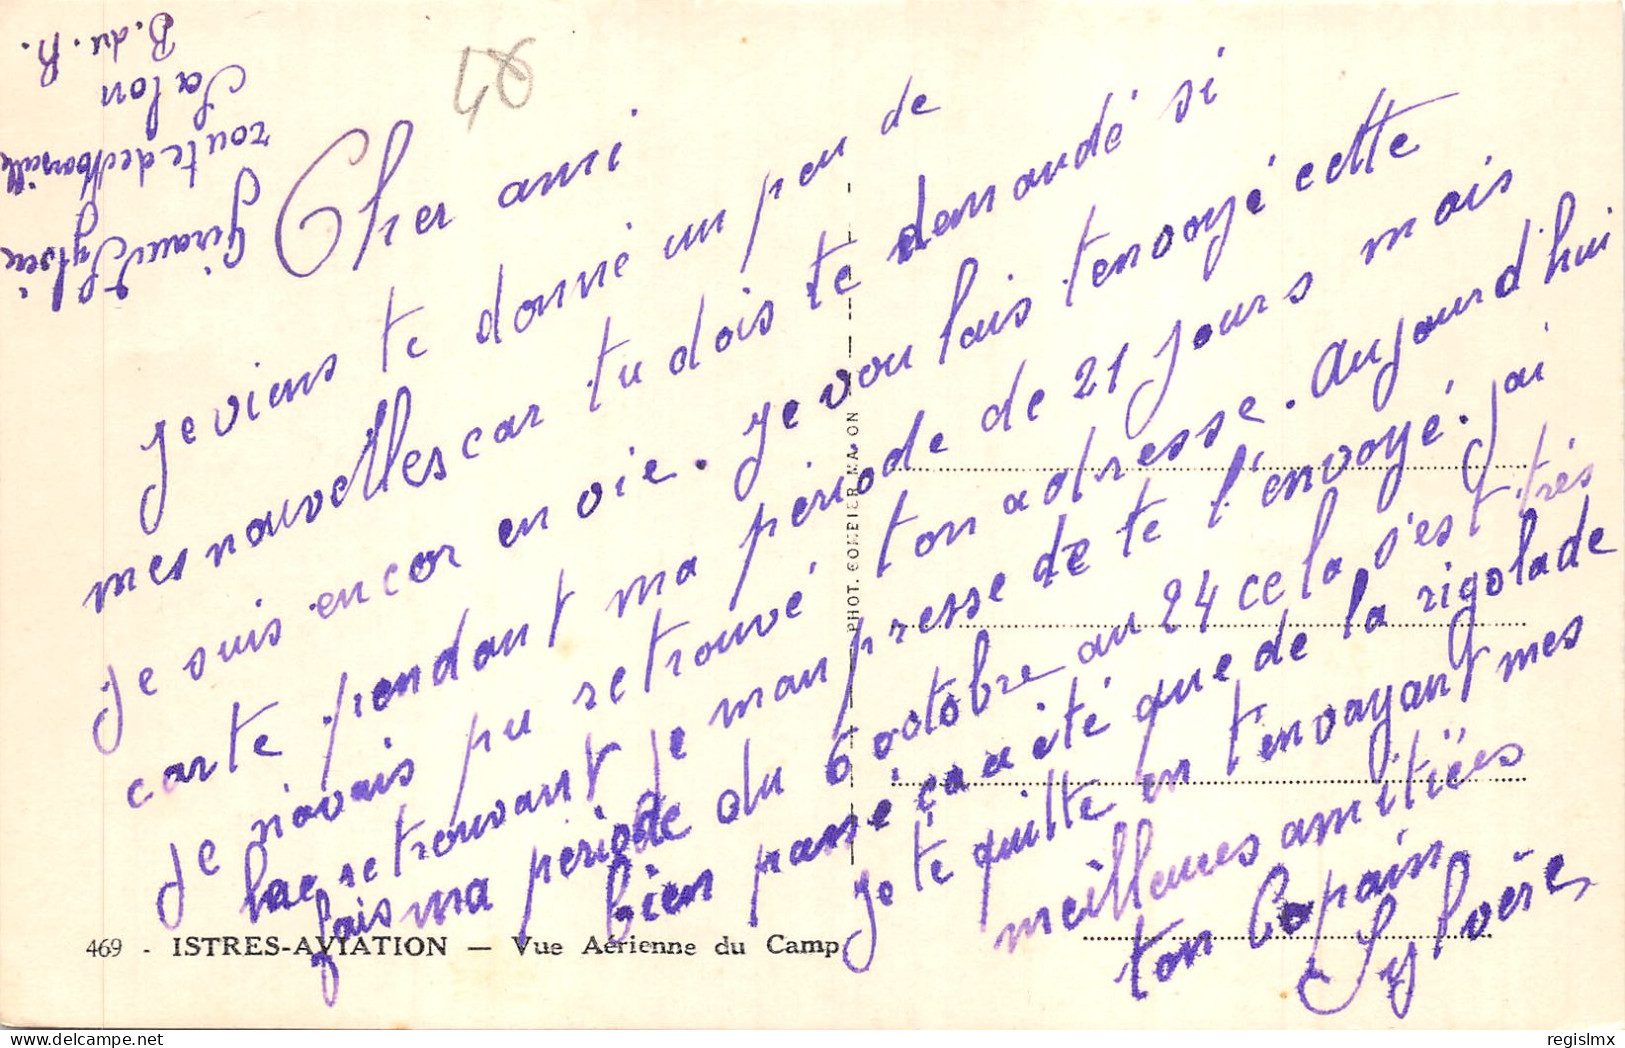 Giraud Sylvère
route de Marseille
Salon
B. du. R.
48
Cher ami
Je viens te donné un peu de
mes nouvelles car tu dois te demandé si
je suis encor en vie. Je voulais t'envoyé cette
carte pendant ma période de 21 jours mais
je n'avais pu retrouvé ton adresse. Aujourd'hui
la retrouvant je m'an presse de te l'envoyé. J'ai
fais ma période du 6 octobre au 24 cela s'est très
bien passé ça a été que de la rigolade
Je te quitte en t'envoyant mes
meilleures amitiées
ton Copain
Sylvère
PHOT. COMBIER MACON
469 - ISTRES-AVIATION — Vue Aérienne du Camp
regislmx